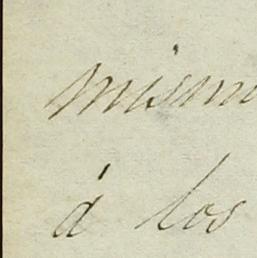 mism
á los